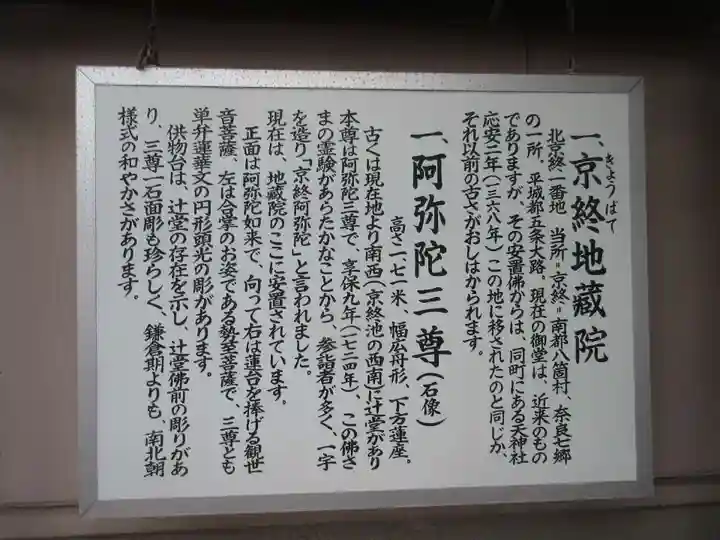 一、京終地蔵院
きょうばて
北京終一番地 当所〃京終〃南都八箇村、奈良七郷
の一所、平城都五条大路。現在の御堂は、近来のもの
でありますが、その安置佛からは、同町にある天神社
応安二年(一三六八年)この地に移されたのと同じか、
それ以前の古さがおしはかられます。
一、阿弥陀三尊(石像)
高さ一・七一米 幅広舟形、下方蓮座。
古くは現在地より南西(京終池の西南)に辻堂があり
本尊は阿弥陀三尊で、享保九年(一七二四年)、この佛さ
まの霊験があらたかなことから、参詣者が多く、一宇
を造り「京終阿弥陀」と言われました。
現在は、地蔵院のここに安置されています。
正面は阿弥陀如来で、向って右は蓮台を捧げる観世
音菩薩、左は合掌のお姿である勢至菩薩で、三尊とも
単弁蓮華文の円形頭光の彫があります。
供物台は、辻堂の存在を示し、辻堂佛前の彫りがあ
り、三尊一石面彫も珍らしく、鎌倉期よりも、南北朝
様式の和やかさがあります。